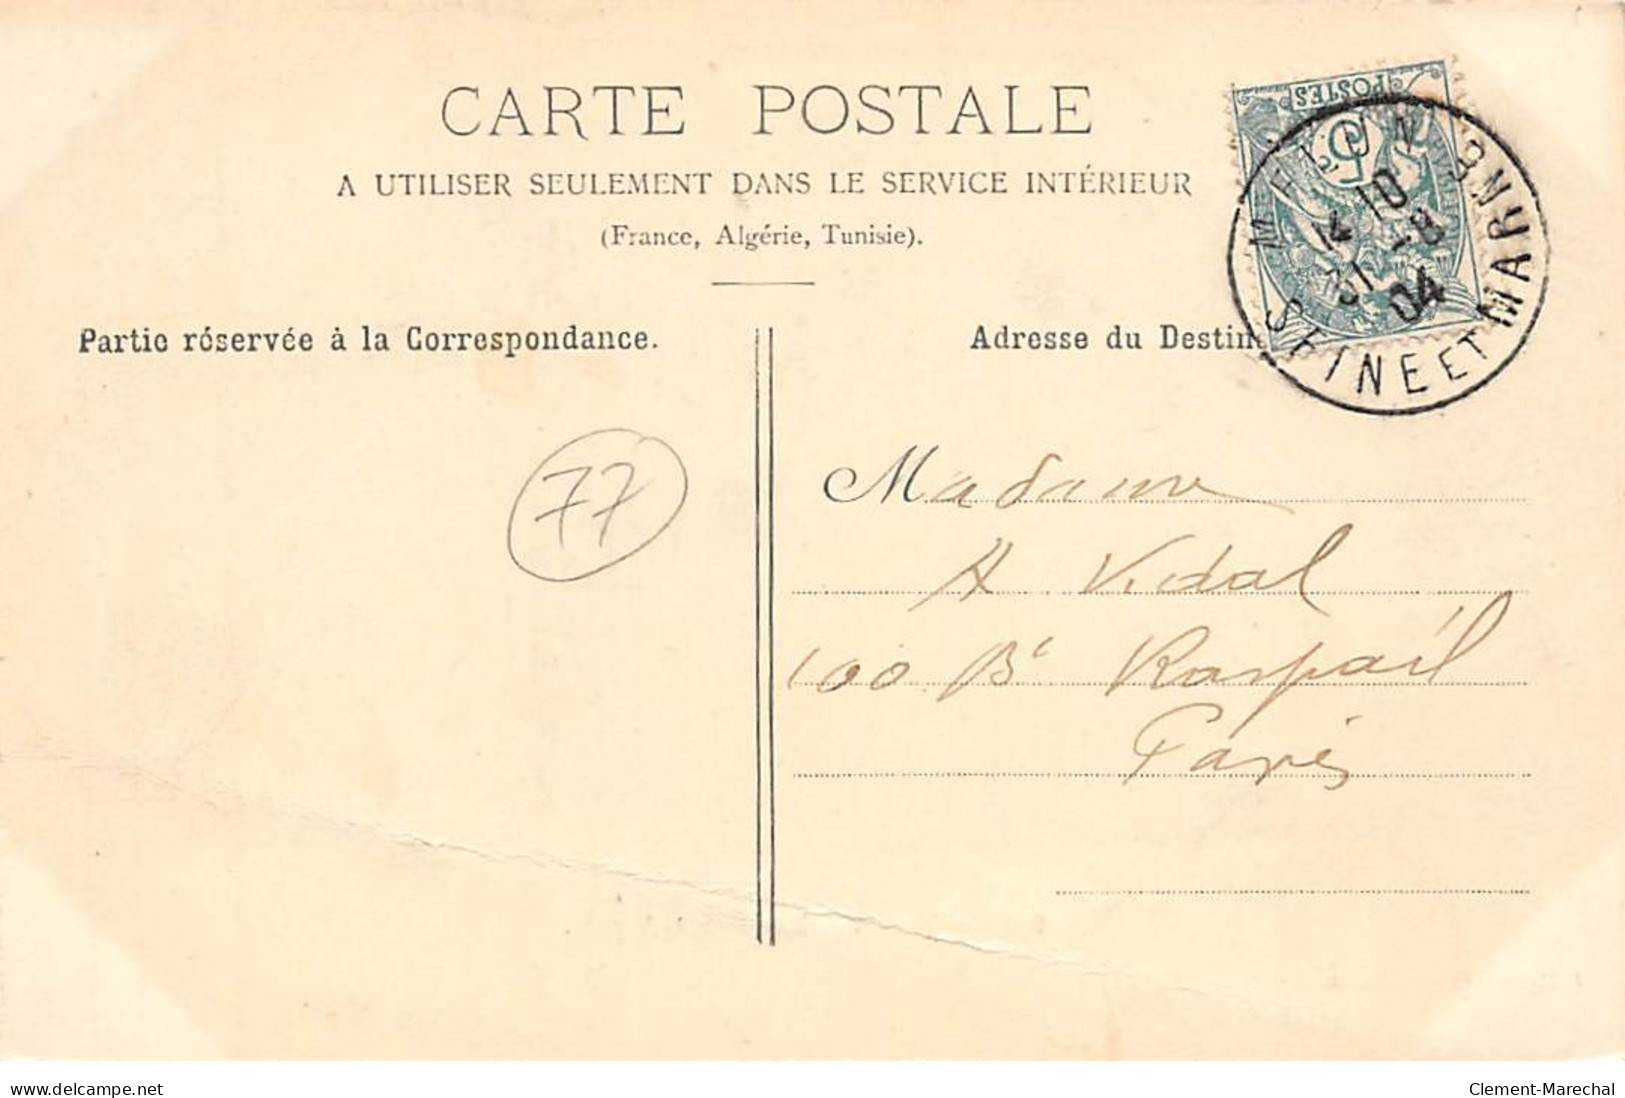 CARTE POSTALE
A UTILISER SEULEMENT DANS LE SERVICE INTÉRIEUR
(France, Algérie, Tunisie).
POSTES
5
MELUN
14 10
31 -8
04
SEINE ET MARNE
Partie réservée à la Correspondance.
Adresse du Destin
77
Madame
A Vidal
100 Bd Raspail
Paris
www.delcampe.net
Clement-Marechal